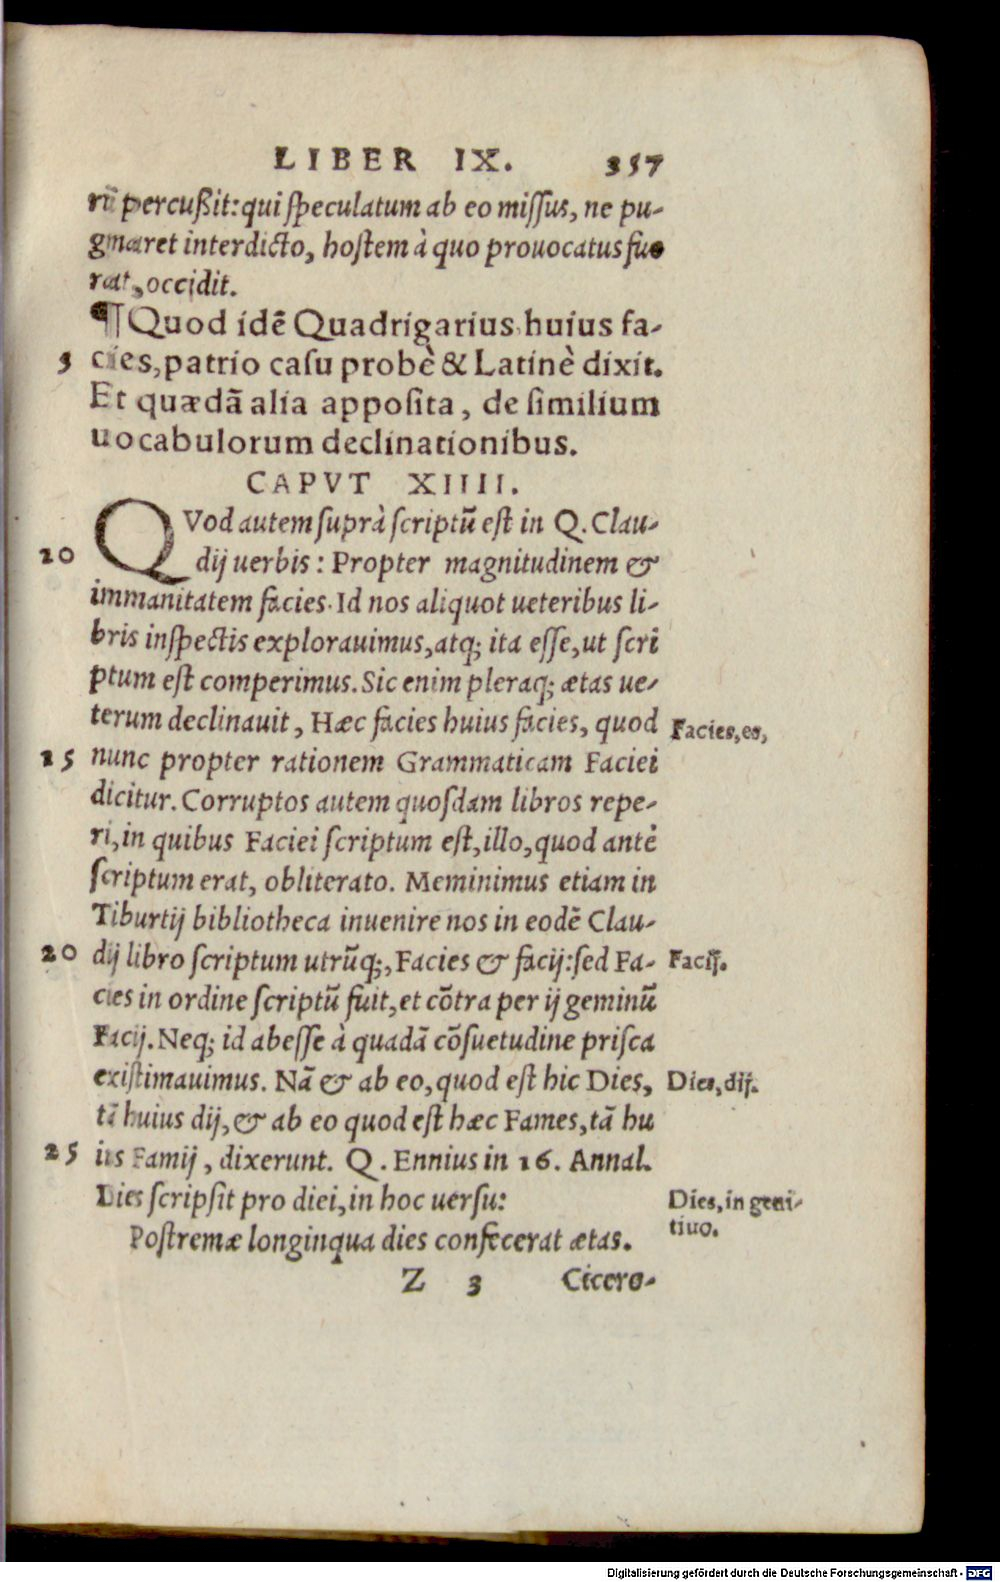 LIBER IX. 357
rũ percußit: qui speculatum ab eo missus, ne pu-
gnaret interdicto, hostem à quo prouocatus fue
rat, occidit.
¶ Quod idẽ Quadrigarius huius fa-
5 cies, patrio casu probè & Latinè dixit.
Et quædã alia apposita, de similium
uocabulorum declinationibus.
CAPVT XIIII.
QVod autem suprà scriptũ est in Q. Clau-
10 dij uerbis: Propter magnitudinem &
immanitatem facies. Id nos aliquot ueteribus li-
bris inspectis explorauimus, atq; ita esse, ut scri
ptum est comperimus. Sic enim pleraq; ætas ue-
terum declinauit, Hæc facies huius facies, quod
Facies, es,
15 nunc propter rationem Grammaticam Faciei
dicitur. Corruptos autem quosdam libros repe-
ri, in quibus Faciei scriptum est, illo, quod antè
scriptum erat, obliterato. Meminimus etiam in
Tiburtij bibliotheca inuenire nos in eodẽ Clau-
20 dij libro scriptum utrũq;, Facies & facij: sed Fa-
Facij.
cies in ordine scriptũ fuit, et cõtra per ij geminũ
Facij. Neq; id abesse à quadã cõsuetudine prisca
existimauimus. Nã & ab eo, quod est hic Dies,
Dies, dij.
tã huius dij, & ab eo quod est hæc Fames, tã hu
25 ius Famij, dixerunt. Q. Ennius in 16. Annal.
Dies scripsit pro diei, in hoc uersu:
Dies, in geni-
tiuo.
Postremæ longinqua dies confecerat ætas.
Z 3 Cicero-
Digitalisierung gefördert durch die Deutsche Forschungsgemeinschaft - DFG